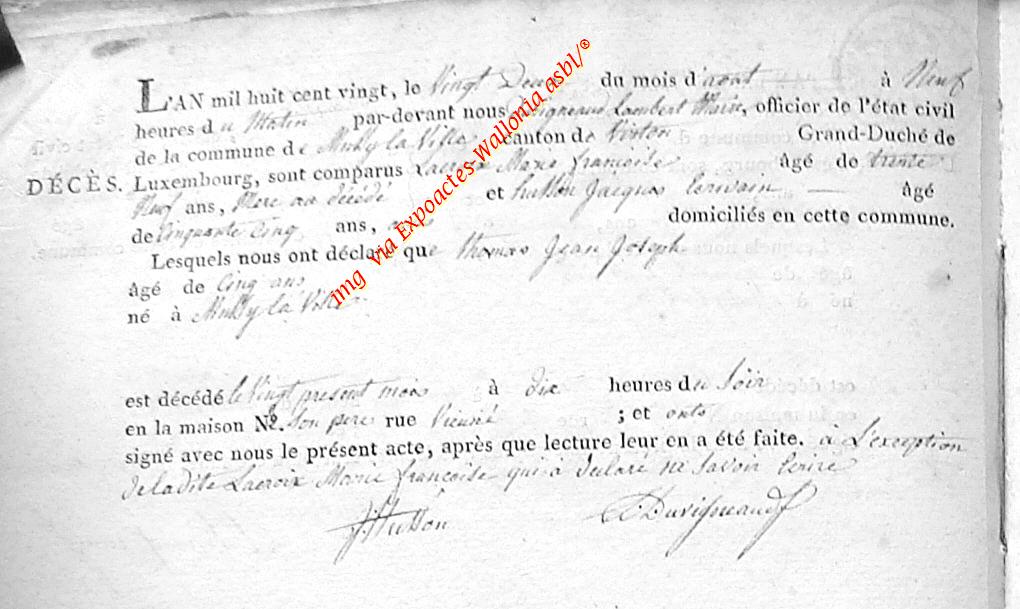 L'AN mil huit cent vingt, le Vingt Deux du mois d'aout à Neuf
heures du Matin par-devant nous Duvigneaud Lambert Marie, officier de l'état civil
de la commune de Mussy la Ville canton de Virton Grand-Duché de
DÉCÈS. Luxembourg, sont comparus Lacroix Marie françoise âgé de trente
Neuf ans, Mere au décédé et husson Jacques Ecrivain âgé
de Cinquante Cinq ans, domiciliés en cette commune.
Lesquels nous ont déclaré que thomas Jean Joseph
âgé de Cinq ans
né à Mussy la Ville
est décédé le Vingt present mois à dix heures du Soir
en la maison No. Son pere rue ; et onts
signé avec nous le présent acte, après que lecture leur en a été faite. à L'exception
de la dite Lacroix Marie françoise qui a declaré ne Savoir Ecrire
J. Husson Duvigneaud
img via Expoactes-Wallonia asbl/®